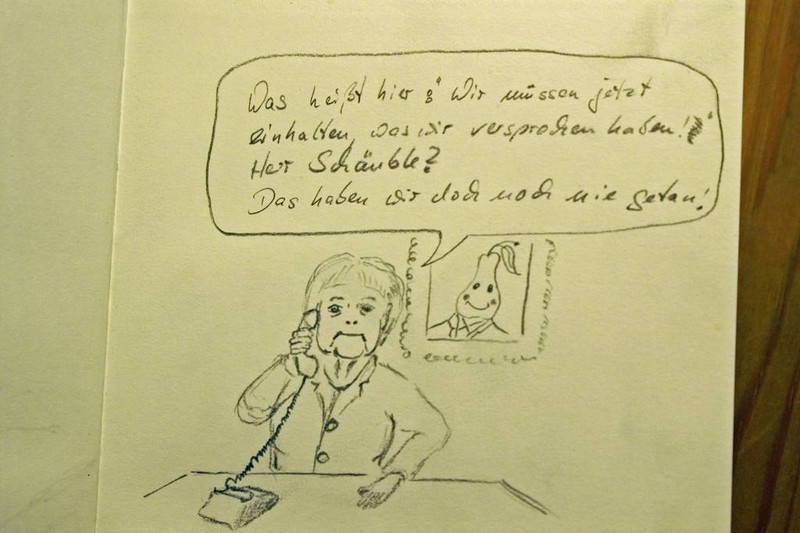 Was heißt hier: "Wir müssen jetzt
einhalten, was wir versprochen haben!"
Herr Schäuble?
Das haben wir doch noch nie getan!